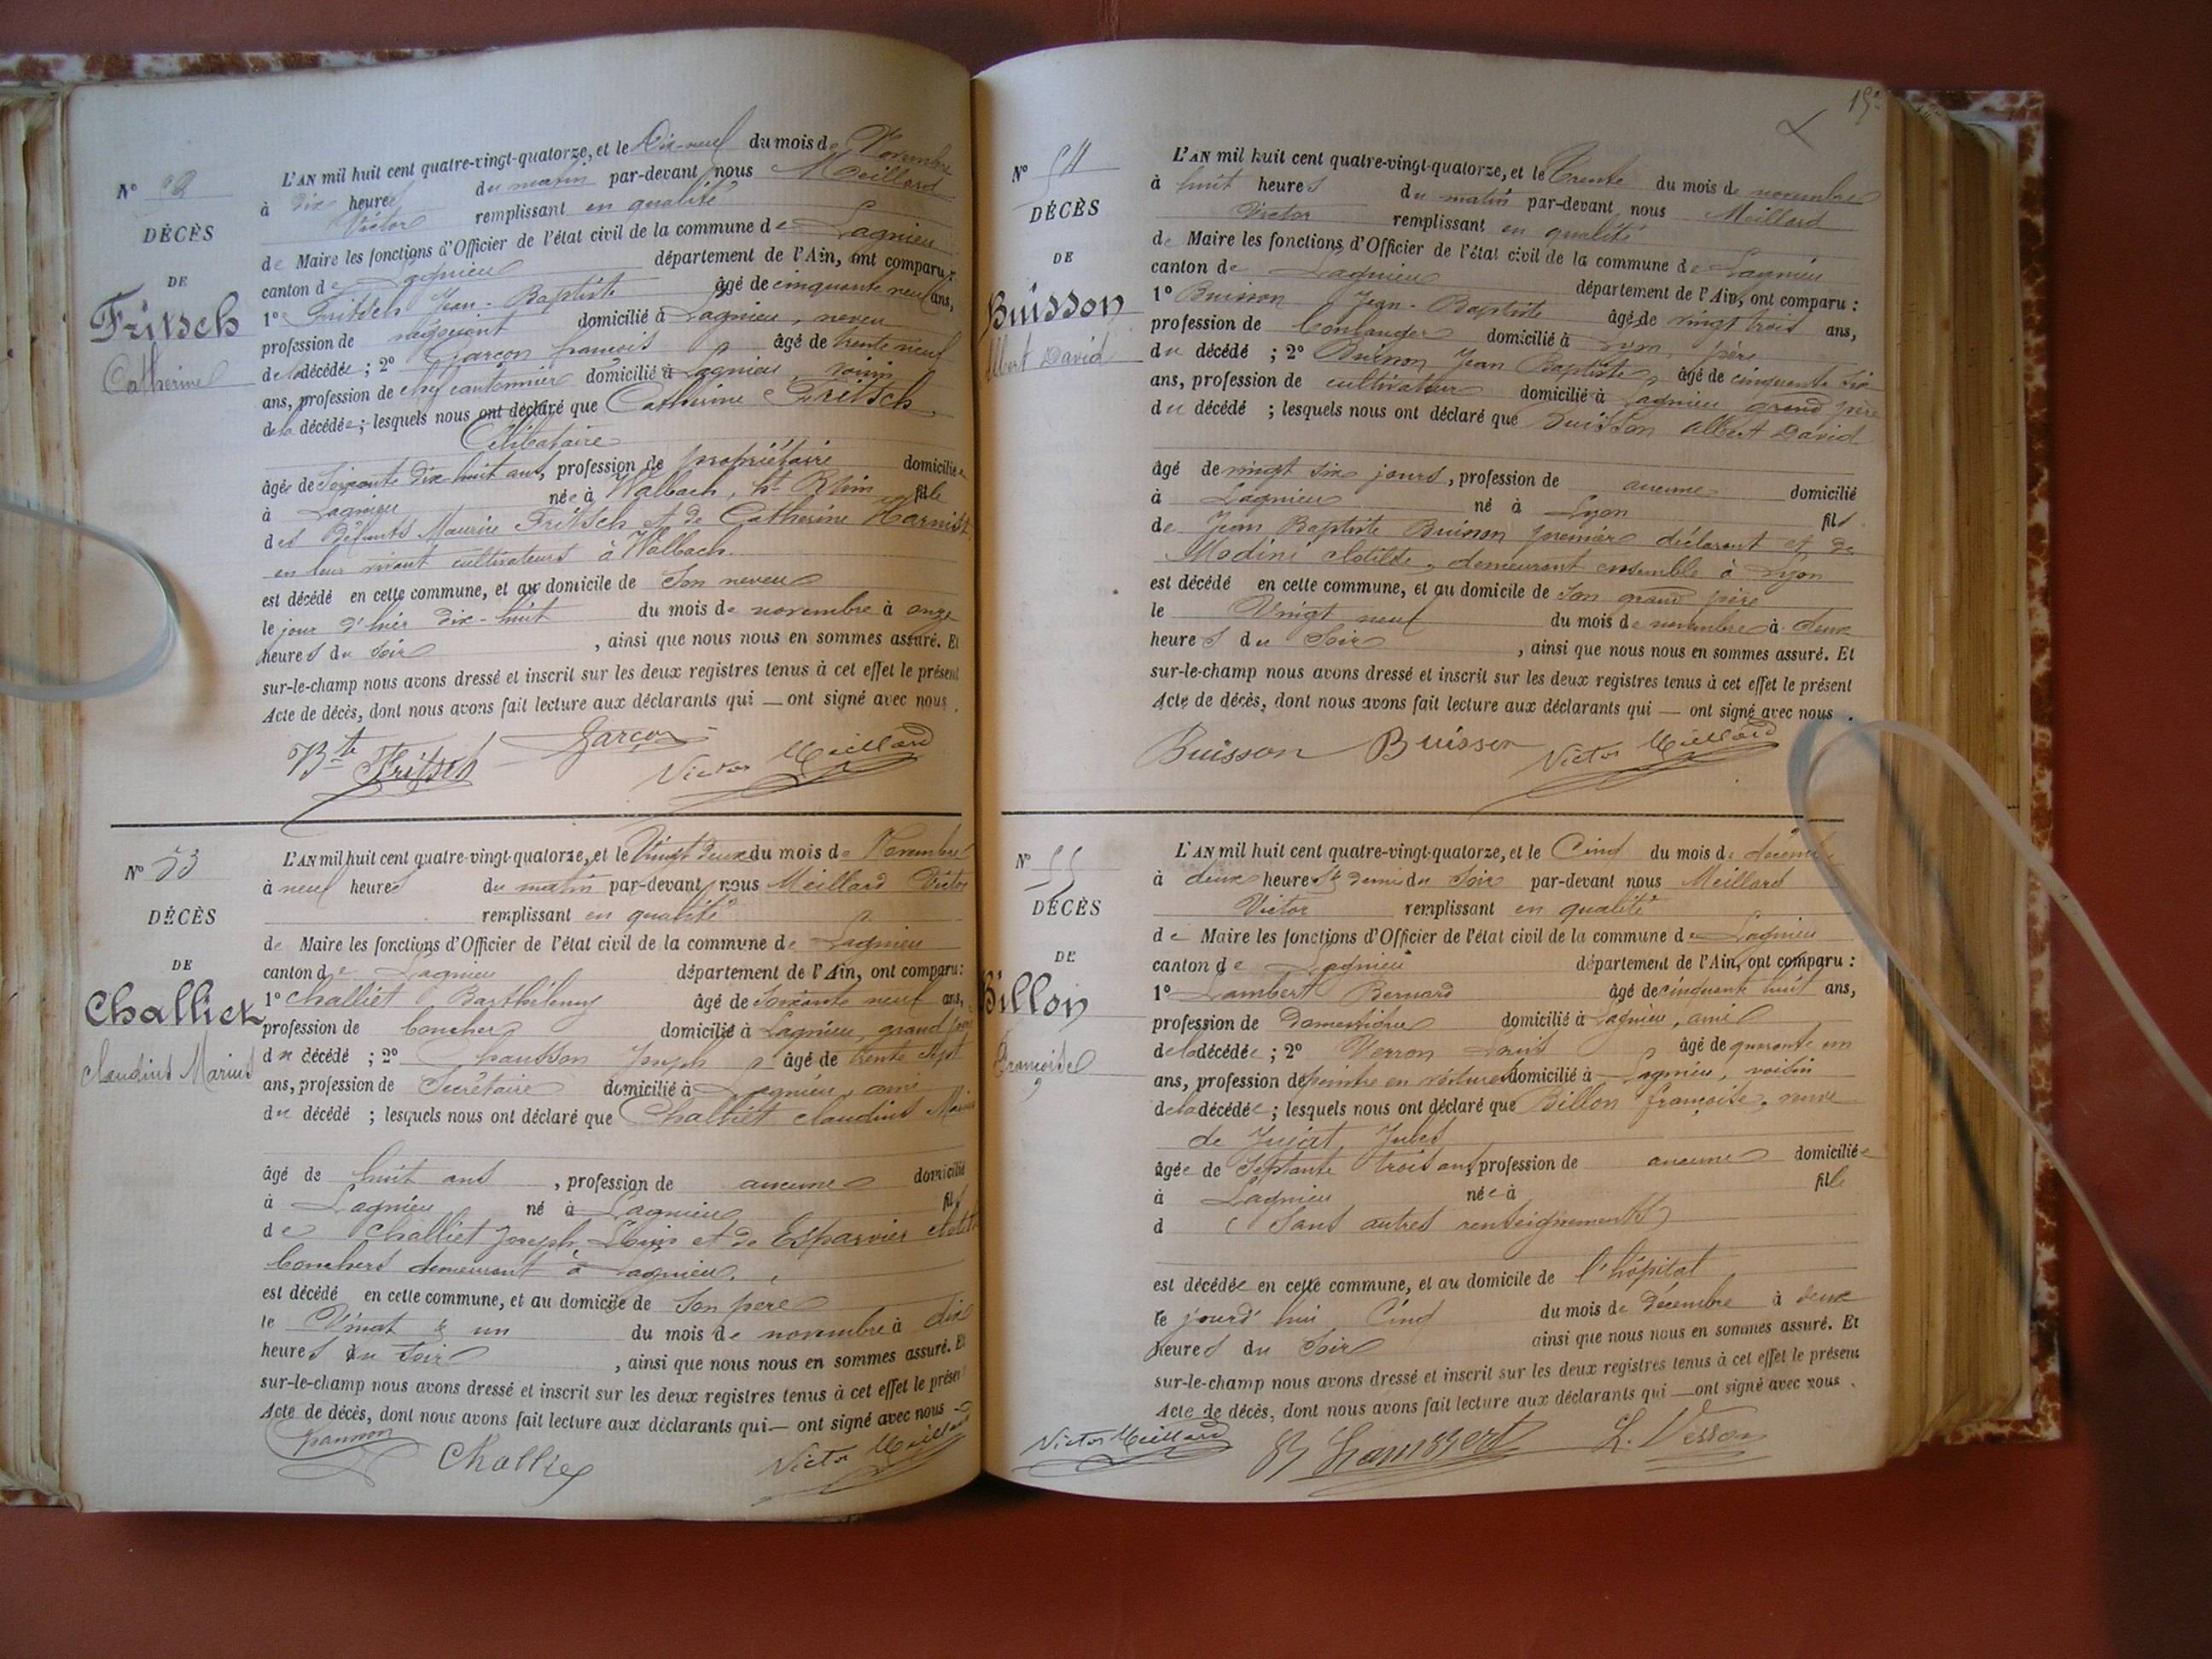 N° 52
DÉCÈS
DE
Fritsch
Catherine
L'AN mil huit cent quatre-vingt-quatorze, et le Dix-neuf du mois de Novembre
à dix heures du matin par-devant nous Meillard
Victor remplissant en qualité
de Maire les fonctions d'Officier de l'état civil de la commune de Lagnieu
canton de Lagnieu département de l'Ain, ont comparu:
1° Fritsch Jean-Baptiste âgé de cinquante neuf ans,
profession de négociant domicilié à Lagnieu, neveu
de la décédée; 2° Garçon françois âgé de trente neuf
ans, profession de chef cantonnier domicilié à Lagnieu, voisin
de la décédée; lesquels nous ont déclaré que Catherine Fritsch,
Célibataire
âgée de Soixante Dix-huit ans, profession de propriétaire domiciliée
à Lagnieu née à Walbach, ht Rhin fille
des Défunts Maurice Fritsch et de Catherine Harnist,
en leur vivant cultivateurs à Walbach.
est décédé en cette commune, et au domicile de Son neveu
le jour d'hier dix-huit du mois de novembre à onze
heures du Soir, ainsi que nous nous en sommes assuré. Et
sur-le-champ nous avons dressé et inscrit sur les deux registres tenus à cet effet le présent
Acte de décès, dont nous avons fait lecture aux déclarants qui — ont signé avec nous.
Bte Fritsch Garçon Victor Meillard
N° 53
DÉCÈS
DE
Challiet
Claudius Marius
L'AN mil huit cent quatre-vingt-quatorze, et le Vingt deux du mois de Novembre
à neuf heures du matin par-devant nous Meillard Victor
remplissant en qualité
de Maire les fonctions d'Officier de l'état civil de la commune de Lagnieu
canton de Lagnieu département de l'Ain, ont comparu:
1° Challiet Barthélemy âgé de Soixante neuf ans,
profession de boucher domicilié à Lagnieu, grand père
du décédé; 2° Joseph âgé de trente sept
ans, profession de Secrétaire domicilié à Lagnieu, ami
du décédé; lesquels nous ont déclaré que Challiet Claudius Marius
âgé de huit ans, profession de aucune domicilié
à Lagnieu né à Lagnieu fils
de Challiet Joseph, Louis et de Esparvier
bouchers demeurant à Lagnieu.
est décédé en cette commune, et au domicile de Son père
le Vingt & un du mois de novembre à dix
heures du Soir, ainsi que nous nous en sommes assuré. Et
sur-le-champ nous avons dressé et inscrit sur les deux registres tenus à cet effet le présent
Acte de décès, dont nous avons fait lecture aux déclarants qui — ont signé avec nous
Challiet Victor Meillard
N° 54
DÉCÈS
DE
Buisson
Albert David
L'AN mil huit cent quatre-vingt-quatorze, et le Trente du mois de novembre
à huit heures du matin par-devant nous Meillard
Victor remplissant en qualité
de Maire les fonctions d'Officier de l'état civil de la commune de Lagnieu
canton de Lagnieu département de l'Ain, ont comparu:
1° Buisson Jean-Baptiste âgé de vingt trois ans,
profession de boulanger domicilié à Lyon, père
du décédé; 2° Buisson Jean Baptiste, âgé de cinquante six
ans, profession de cultivateur domicilié à Lagnieu grand père
du décédé; lesquels nous ont déclaré que Buisson Albert David
âgé de vingt six jours, profession de aucune domicilié
à Lagnieu né à Lyon fils
de Jean Baptiste Buisson premier déclarant et de
Modini Clotilde, demeurant ensemble à Lyon
est décédé en cette commune, et au domicile de Son grand père
le Vingt neuf du mois de novembre à deux
heures du Soir, ainsi que nous nous en sommes assuré. Et
sur-le-champ nous avons dressé et inscrit sur les deux registres tenus à cet effet le présent
Acte de décès, dont nous avons fait lecture aux déclarants qui — ont signé avec nous.
Buisson Buisson Victor Meillard
N° 55
DÉCÈS
DE
Billon
Françoise
L'AN mil huit cent quatre-vingt-quatorze, et le Cinq du mois de décembre
à deux heures & demie du Soir par-devant nous Meillard
Victor remplissant en qualité
de Maire les fonctions d'Officier de l'état civil de la commune de Lagnieu
canton de Lagnieu département de l'Ain, ont comparu:
1° Lambert Bernard âgé de cinquante huit ans,
profession de Domestique domicilié à Lagnieu, ami
de la décédée; 2° Verron Louis âgé de quarante un
ans, profession de peintre en voitures domicilié à Lagnieu, voisin
de la décédée; lesquels nous ont déclaré que Billon françoise, veuve
de Jujat, Jules
âgée de Septante trois ans, profession de aucune domiciliée
à Lagnieu née à fille
d (Sans autres renseignements)
est décédée en cette commune, et au domicile de l'hôpital
le jourd'hui Cinq du mois de Décembre à deux
heures du Soir ainsi que nous nous en sommes assuré. Et
sur-le-champ nous avons dressé et inscrit sur les deux registres tenus à cet effet le présent
Acte de décès, dont nous avons fait lecture aux déclarants qui — ont signé avec nous.
Victor Meillard Lambert L. Verron